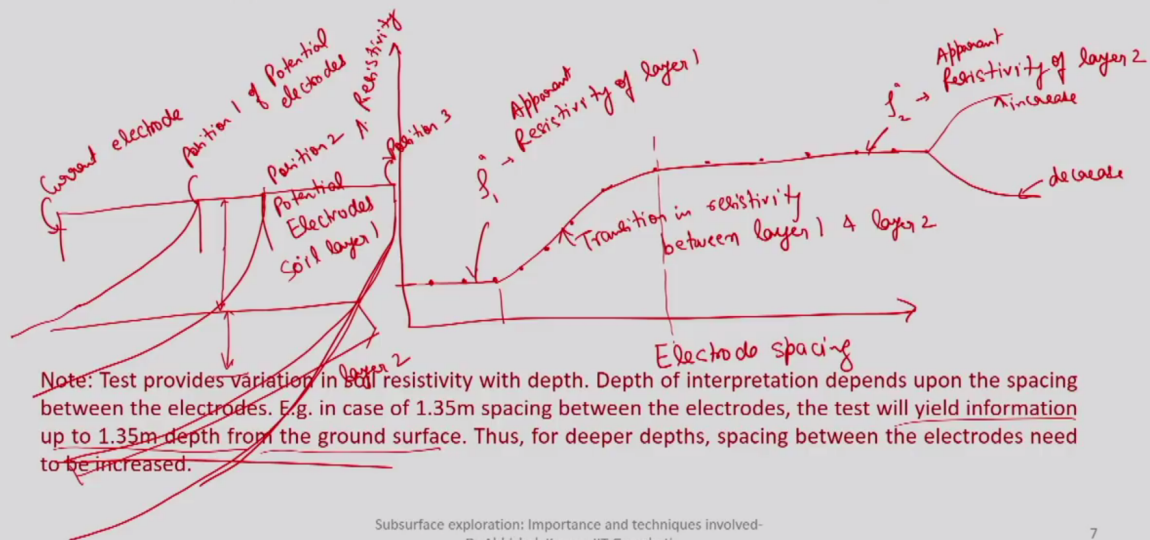 Current electrode
Position 1 of Potential
electrodes
Position 2
Resistivity
Position 3
Potential
Electrodes
Soil layer 1
layer 2
ρ1 → Apparant
Resistivity of layer 1
Transition in resistivity
between layer 1 & layer 2
ρ2 → Apparant
Resistivity of layer 2
increase
decrease
Electrode spacing
Note: Test provides variation in soil resistivity with depth. Depth of interpretation depends upon the spacing
between the electrodes. E.g. in case of 1.35m spacing between the electrodes, the test will yield information
up to 1.35m depth from the ground surface. Thus, for deeper depths, spacing between the electrodes need
to be increased.
Subsurface exploration: Importance and techniques involved-
7